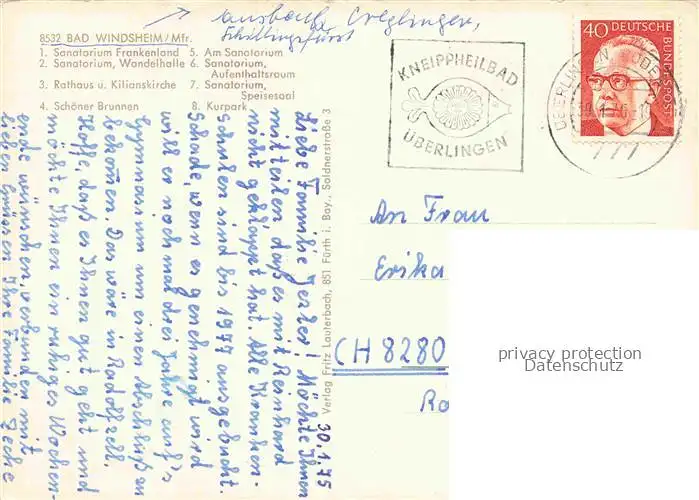 Ansbach, Creglingen,
Schillingsfürst
8532 BAD WINDSHEIM/Mfr.
1. Sanatorium Frankenland 5. Am Sanatorium
2. Sanatorium, Wandelhalle 6. Sanatorium,
Aufenthaltsraum
3. Rathaus u. Kilianskirche 7. Sanatorium,
Speisesaal
4. Schöner Brunnen 8. Kurpark
KNEIPPHEILBAD
ÜBERLINGEN
40 DEUTSCHE
BUNDESPOST
30.1.75
Liebe Familie! Möchte Ihnen
mitteilen daß es mit Reinhard
nicht geklappt hat. Alle Kranken-
schulen sind bis 1977 ausgebucht.
Schade, wenn es genehmigt wird
will er noch mal drei Jahre auf's
Gymnasium um einen Abschluß zu
bekommen. Das wäre in Radolfzell.
Hoff, daß es Ihnen gut geht und
möchte Ihnen ein ruhiges Wochen-
ende wünschen, verbunden mit
lieben Grüssen Ihre Familie
Verlag Fritz Lauterbach, 851 Fürth i. Bay., Soldnerstraße 3
An Frau
Erika
CH 8280
privacy protection
Datenschutz